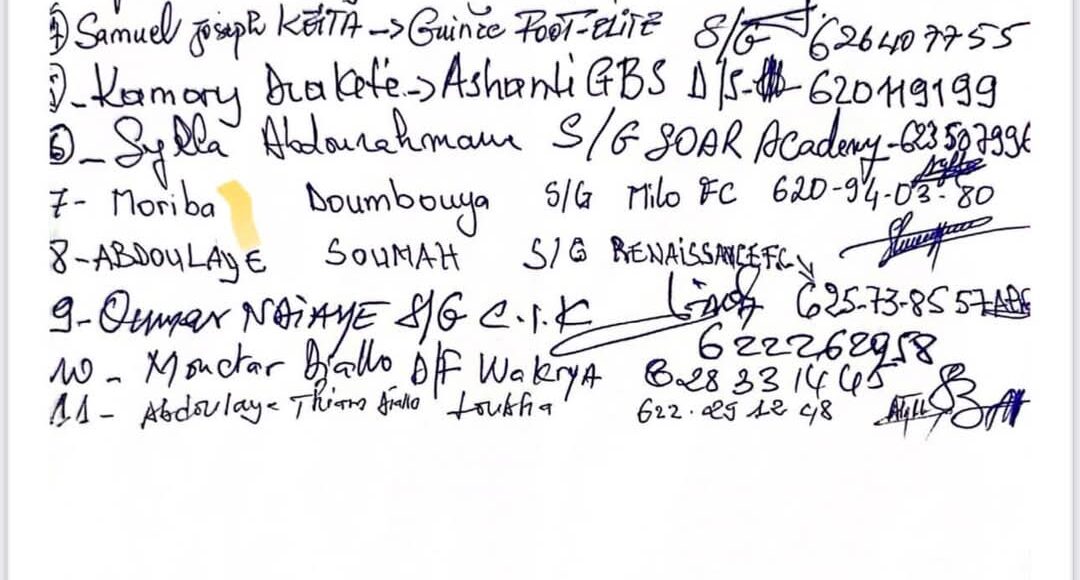 Samuel Joseph KEÏTA --> Guinée FOOT-ELITE S/G 626407755
5)- Kamory Diakité -> Ashanti GBS D/S- 620119199
6)- Sylla Abdourahmane S/G SOAR Academy-623507996
7- Moriba Doumbouya S/G Milo FC 620-94-03-80
8-ABDOULAYE SOUMAH S/G RENAISSANCE FC
625-73-85 57
9-Oumar NDIAYE S/G C.I.K
622262958
10- Moctar Diallo D/F WAKRYA 628 33 14 45
11- Abdoulaye Thiam diallo Loubha 622.25 12 48